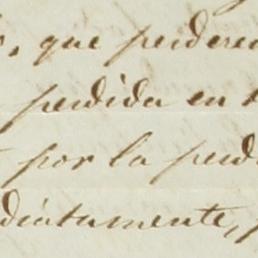 , que perdere
perdida en
por la perd
diatamente,